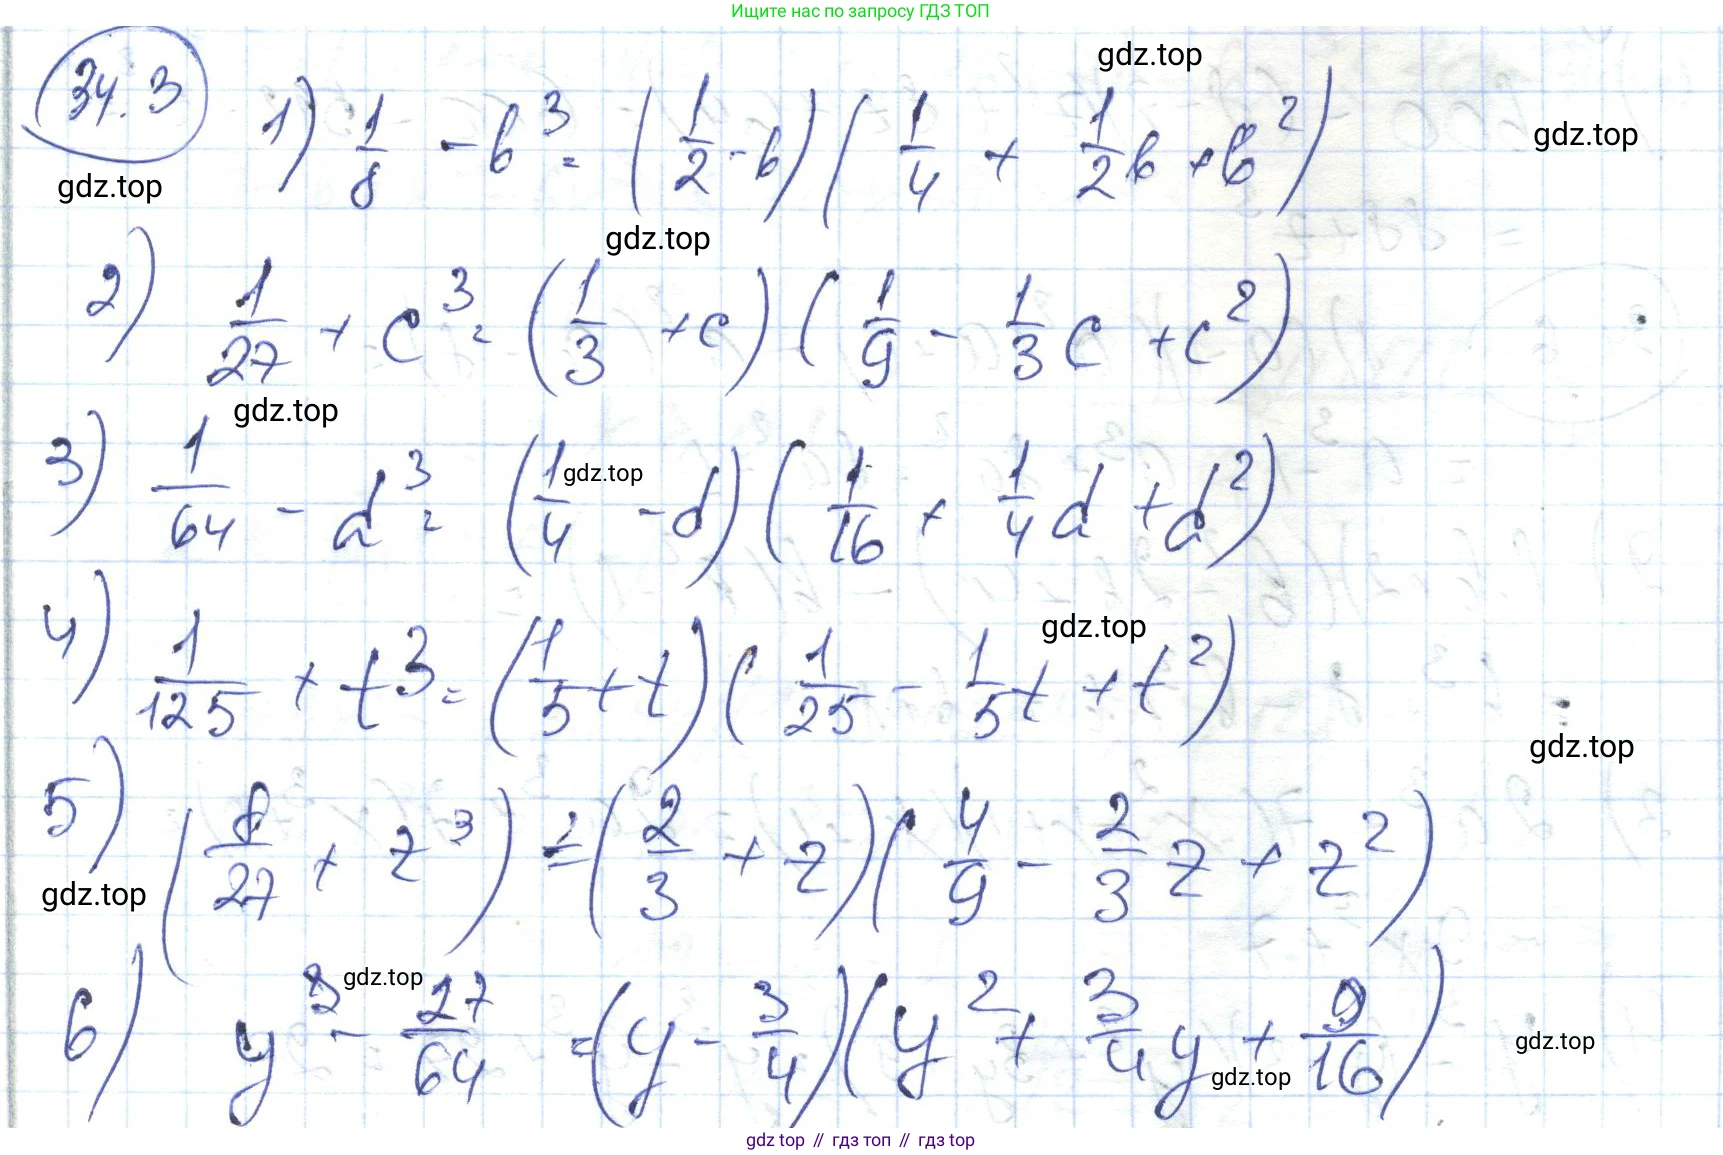 Ищите нас по запросу ГДЗ ТОП
gdz.top
34.3 1) 1/8 - b³ = (1/2 - b)(1/4 + 1/2 b + b²)
gdz.top
gdz.top
gdz.top
2) 1/27 + c³ = (1/3 + c)(1/9 - 1/3 c + c²)
gdz.top
3) 1/64 - d³ = (1/4 - d)(1/16 + 1/4 d + d²)
gdz.top
4) 1/125 + t³ = (1/5 + t)(1/25 - 1/5 t + t²)
gdz.top
gdz.top
5) (8/27 + z³) = (2/3 + z)(4/9 - 2/3 z + z²)
gdz.top
6) y³ - 27/64 = (y - 3/4)(y² + 3/4 y + 9/16)
gdz.top
gdz.top
gdz.top
gdz top // гдз топ // гдз top